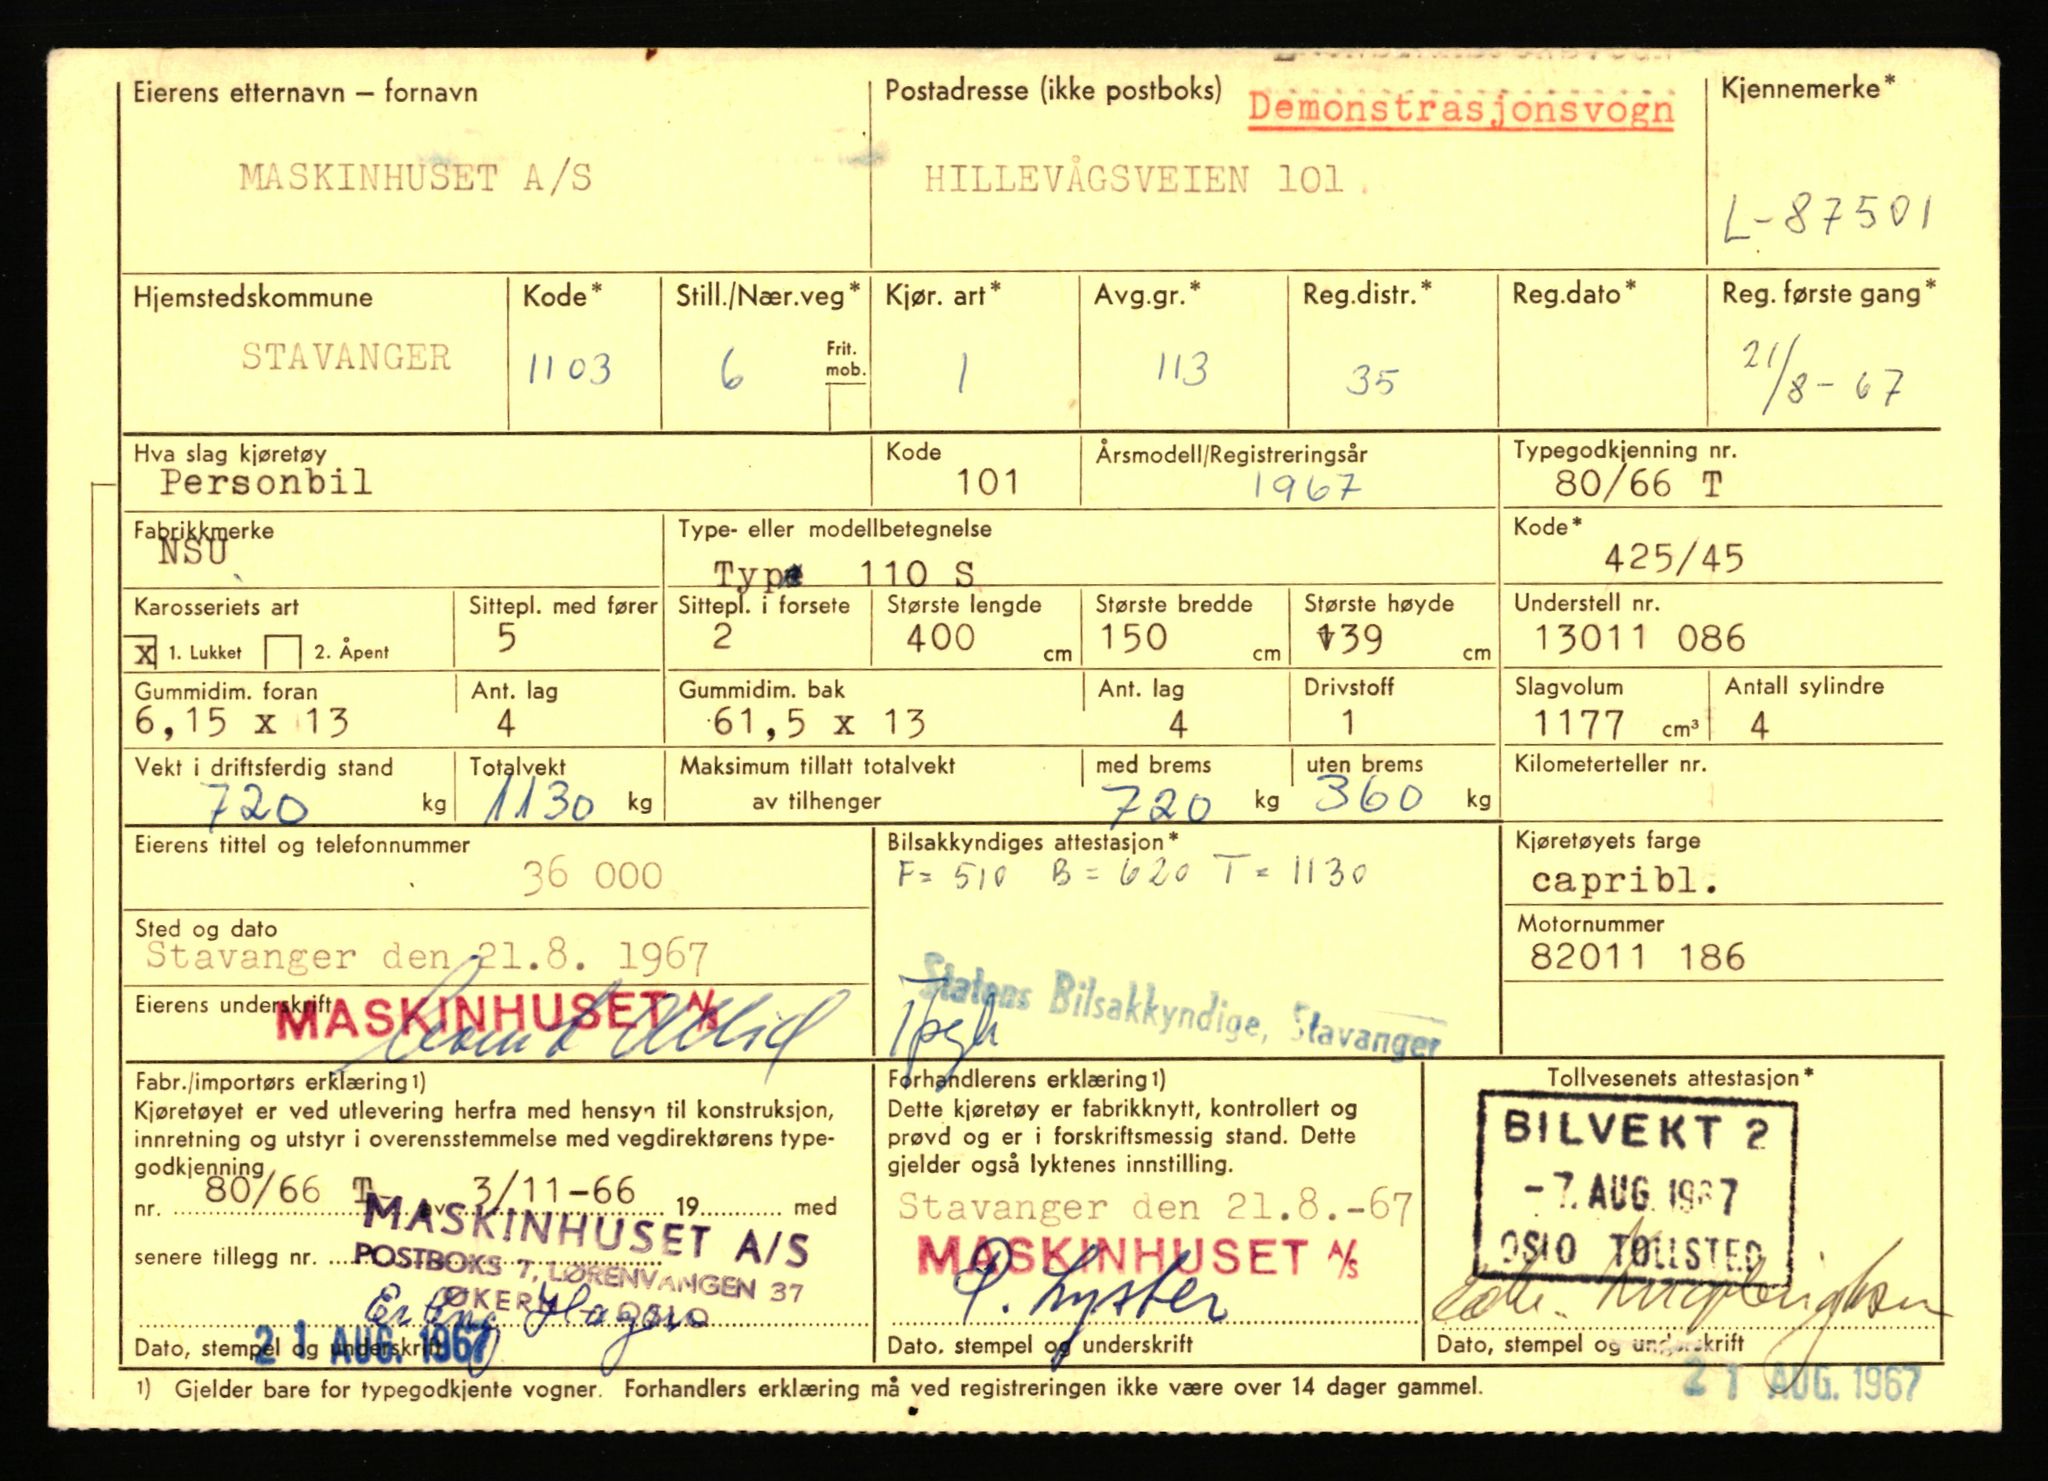 Eierens etternavn – fornavn
MASKINHUSET A/S
Postadresse (ikke postboks)
Demonstrasjonsvogn
HILLEVÅGSVEIEN 101.
Kjennemerke*
L-87501
Hjemstedskommune
STAVANGER
Kode*
1103
Still./Nær.veg*
6
Frit.
mob.
Kjør. art*
1
Avg.gr.*
113
Reg.distr.*
35
Reg.dato*
Reg. første gang*
21/8-67
Hva slag kjøretøy
Personbil
Kode
101
Årsmodell/Registreringsår
1967
Typegodkjenning nr.
80/66 T
Fabrikkmerke
NSU
Type- eller modellbetegnelse
Type 110 S
Kode*
425/45
Karosseriets art
X 1. Lukket 2. Åpent
Sittepl. med fører
5
Sittepl. i forsete
2
Største lengde
400 cm
Største bredde
150 cm
Største høyde
139 cm
Understell nr.
13011 086
Gummidim. foran
6,15 x 13
Ant. lag
4
Gummidim. bak
61,5 x 13
Ant. lag
4
Drivstoff
1
Slagvolum
1177 cm³
Antall sylindre
4
Vekt i driftsferdig stand
720 kg
Totalvekt
1130 kg
Maksimum tillatt totalvekt
av tilhenger
med brems
720 kg
uten brems
360 kg
Kilometerteller nr.
Eierens tittel og telefonnummer
36 000
Bilsakkyndiges attestasjon*
F = 510 B = 620 T = 1130
Statens Bilsakkyndige, Stavanger
Kjøretøyets farge
capribl.
Sted og dato
Stavanger den 21.8. 1967
Motornummer
82011 186
Eierens underskrift
MASKINHUSET A/S
Fabr./importørs erklæring 1)
Kjøretøyet er ved utlevering herfra med hensyn til konstruksjon,
innretning og utstyr i overensstemmelse med vegdirektørens type-
godkjenning
nr. 80/66 T av 3/11-66 19 med
senere tillegg nr.
MASKINHUSET A/S
POSTBOKS 7, LØRENVANGEN 37
ØKERN - OSLO
Erling Hagen
21 AUG. 1967
Dato, stempel og underskrift
Forhandlerens erklæring 1)
Dette kjøretøy er fabrikknytt, kontrollert og
prøvd og er i forskriftsmessig stand. Dette
gjelder også lyktenes innstilling.
Stavanger den 21.8.-67
MASKINHUSET A/S
P. Lyster
Dato, stempel og underskrift
Tollvesenets attestasjon*
BILVEKT 2
-7. AUG. 1967
OSLO TOLLSTED
Dato, stempel og underskrift
21 AUG. 1967
1) Gjelder bare for typegodkjente vogner. Forhandlers erklæring må ved registreringen ikke være over 14 dager gammel.